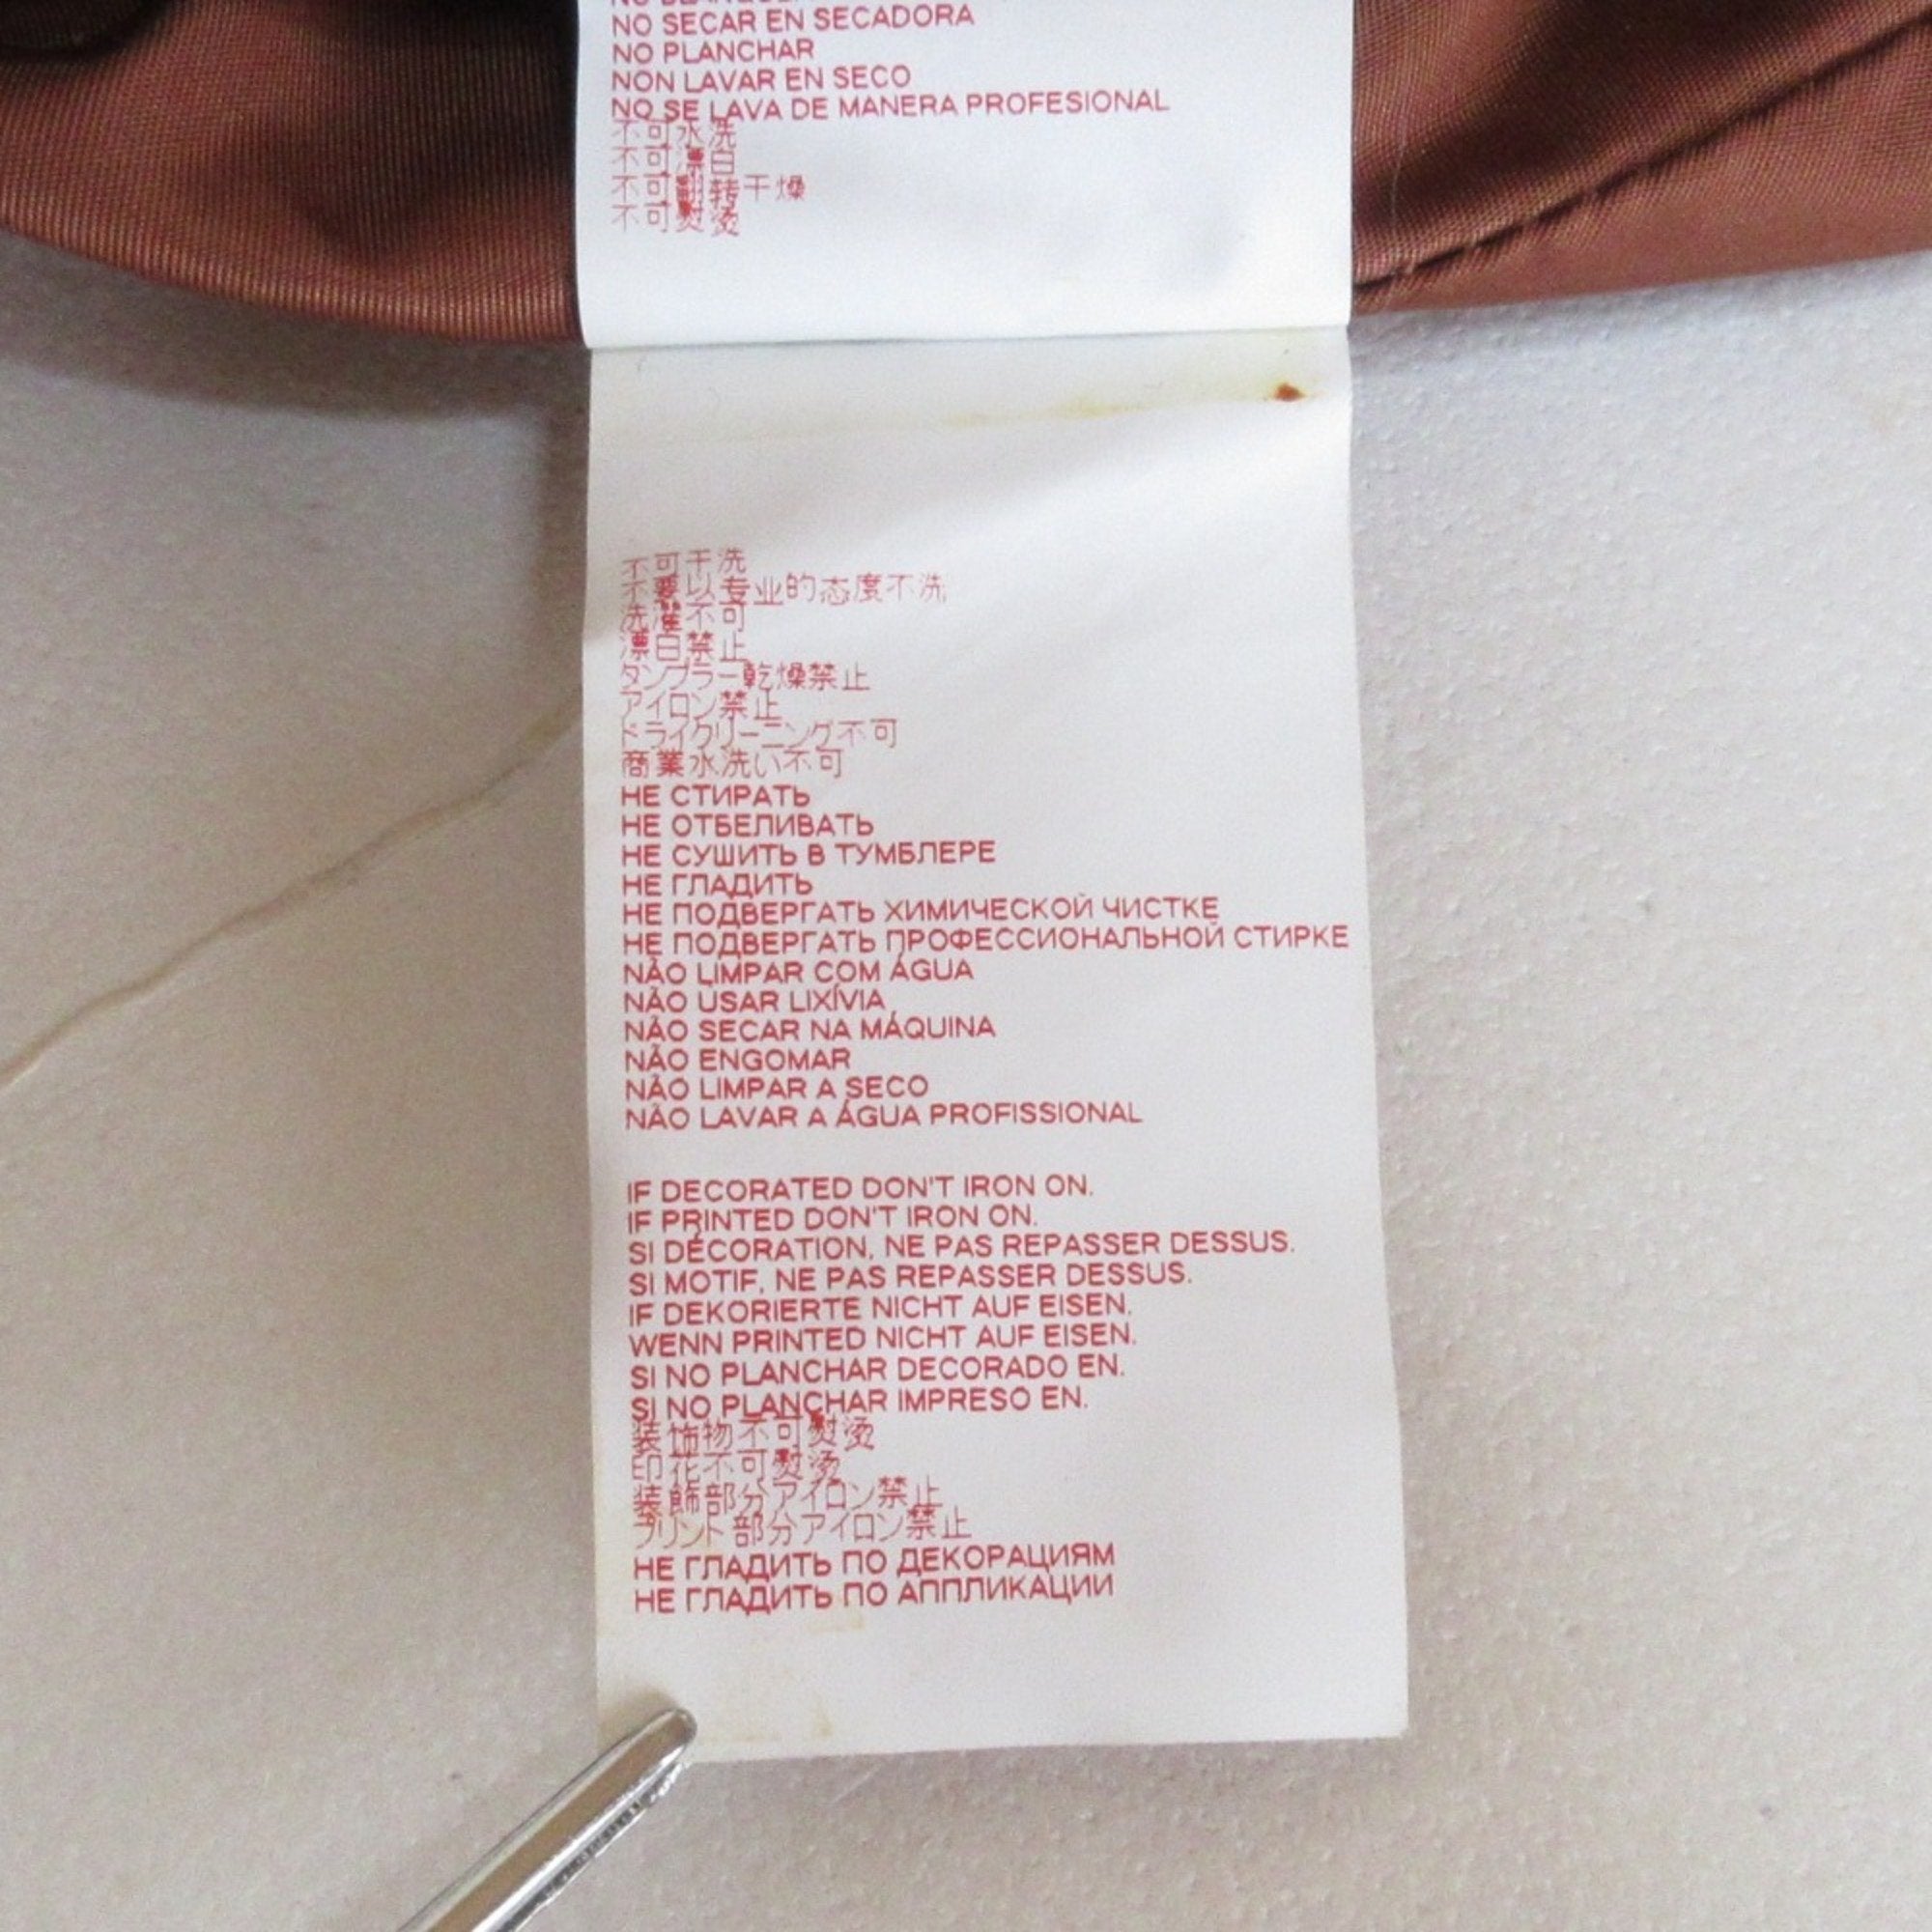 NO SECAR EN SECADORA
NO PLANCHAR
NON LAVAR EN SECO
NO SE LAVA DE MANERA PROFESIONAL
不可水洗
不可漂白
不可翻转干燥
不可熨烫
不可干洗
不要以专业的态度不洗
洗濯不可
漂白禁止
タンブラー乾燥禁止
アイロン禁止
ドライクリーニング不可
商業水洗い不可
НЕ СТИРАТЬ
НЕ ОТБЕЛИВАТЬ
НЕ СУШИТЬ В ТУМБЛЕРЕ
НЕ ГЛАДИТЬ
НЕ ПОДВЕРГАТЬ ХИМИЧЕСКОЙ ЧИСТКЕ
НЕ ПОДВЕРГАТЬ ПРОФЕССИОНАЛЬНОЙ СТИРКЕ
NÃO LIMPAR COM ÁGUA
NÃO USAR LIXÍVIA
NÃO SECAR NA MÁQUINA
NÃO ENGOMAR
NÃO LIMPAR A SECO
NÃO LAVAR A ÁGUA PROFISSIONAL
IF DECORATED DON'T IRON ON.
IF PRINTED DON'T IRON ON.
SI DÉCORATION, NE PAS REPASSER DESSUS.
SI MOTIF, NE PAS REPASSER DESSUS.
IF DEKORIERTE NICHT AUF EISEN.
WENN PRINTED NICHT AUF EISEN.
SI NO PLANCHAR DECORADO EN.
SI NO PLANCHAR IMPRESO EN.
装饰物不可熨烫
印花不可熨烫
装飾部分アイロン禁止
プリント部分アイロン禁止
НЕ ГЛАДИТЬ ПО ДЕКОРАЦИЯМ
НЕ ГЛАДИТЬ ПО АППЛИКАЦИИ